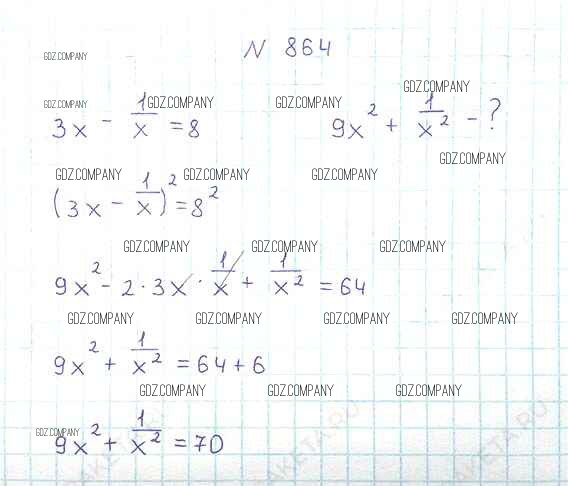 N 864
GDZ.COMPANY
GDZ.COMPANY
GDZ.COMPANY GDZ.COMPANY GDZ.COMPANY
3x - 1/x = 8 9x² + 1/x² - ?
GDZ.COMPANY
GDZ.COMPANY GDZ.COMPANY GDZ.COMPANY
(3x - 1/x)² = 8²
GDZ.COMPANY GDZ.COMPANY GDZ.COMPANY
9x² - 2 · 3x · 1/x + 1/x² = 64
GDZ.COMPANY GDZ.COMPANY GDZ.COMPANY GDZ.COMPANY
9x² + 1/x² = 64 + 6
GDZ.COMPANY GDZ.COMPANY GDZ.COMPANY
GDZ.COMPANY
9x² + 1/x² = 70